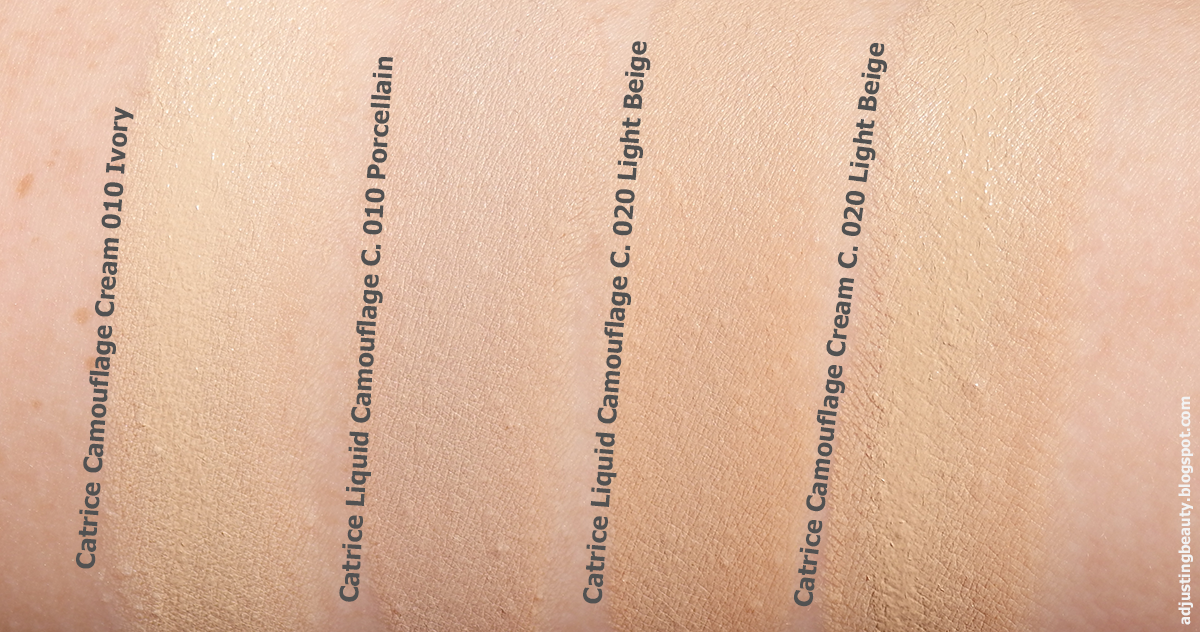 Catrice Camouflage Cream 010 Ivory
Catrice Liquid Camouflage C. 010 Porcellain
Catrice Liquid Camouflage C. 020 Light Beige
Catrice Camouflage Cream C. 020 Light Beige
adjustingbeauty.blogspot.com